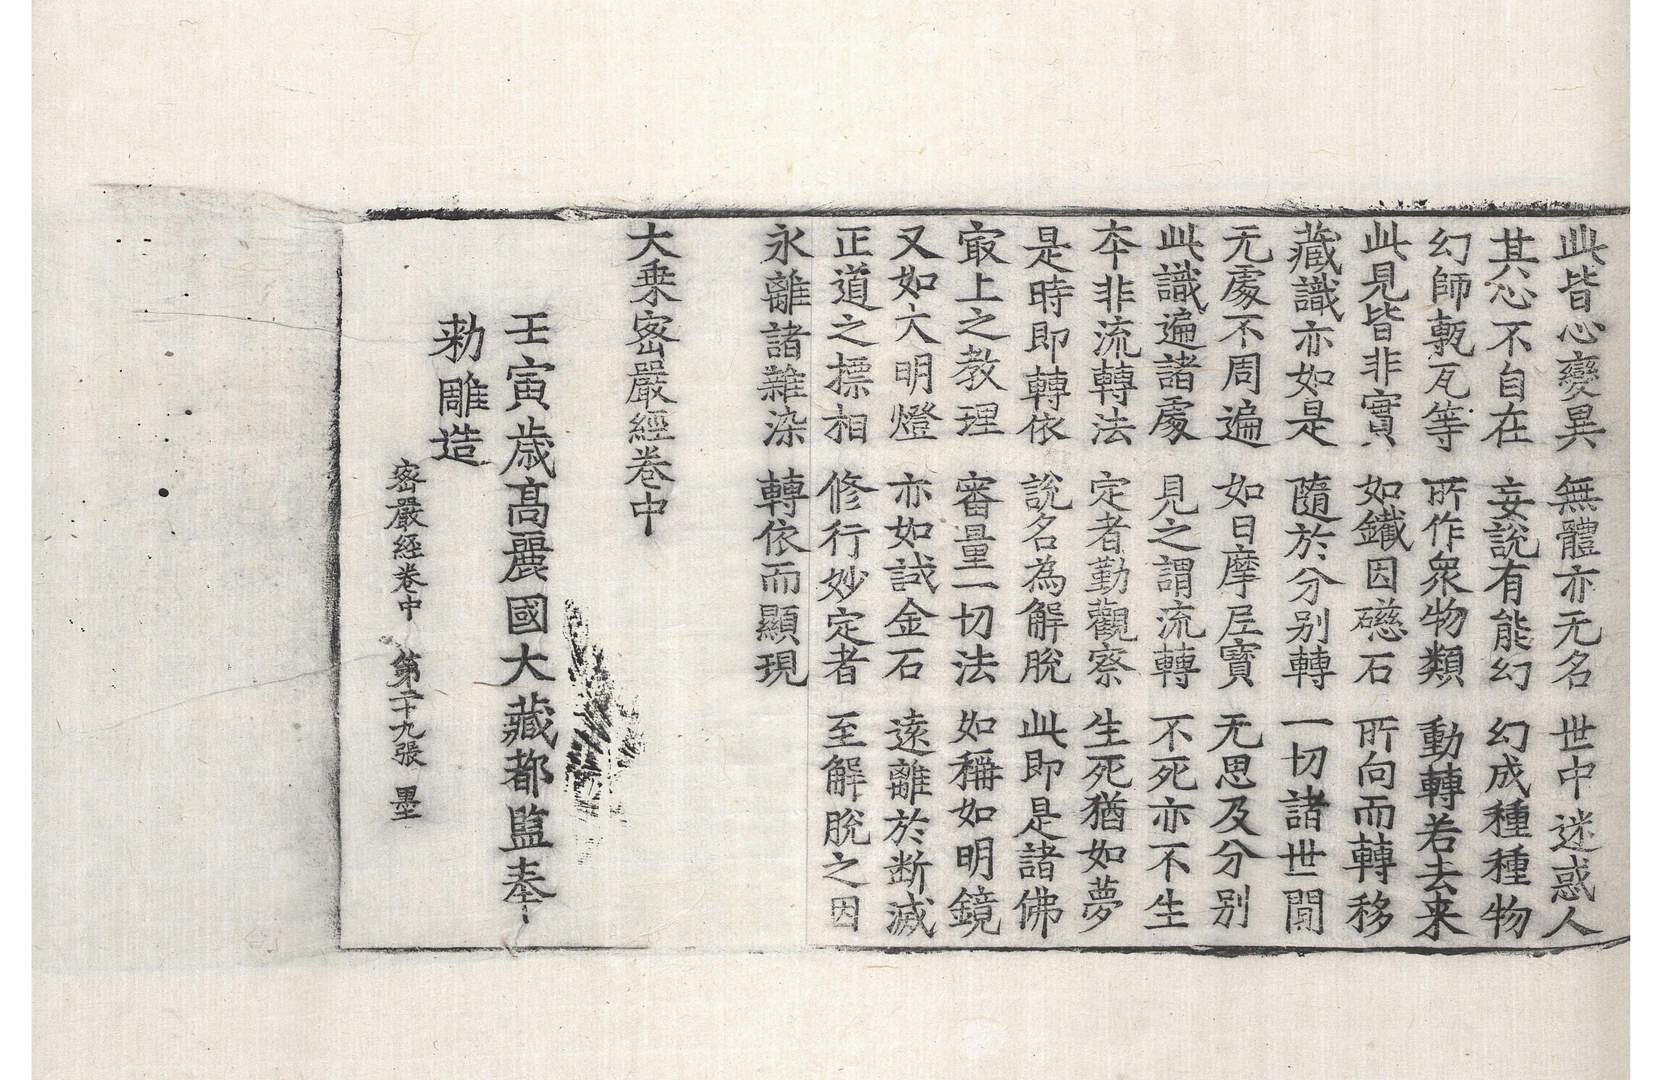 此皆心變異 無體亦无名 世中迷惑人
其心不自在 妄說有能幻 幻成種種物
幻師甎瓦等 所作衆物類 動轉若去来
此見皆非實 如鐵因磁石 所向而轉移
藏識亦如是 隨於分別轉 一切諸世間
无處不周遍 如日摩尼寶 无思及分別
此識遍諸處 見之謂流轉 不死亦不生
夲非流轉法 定者勤觀察 生死猶如夢
是時即轉依 說名為解脫 此即是諸佛
㝡上之教理 審量一切法 如稱如明鏡
又如大明燈 亦如試金石 遠離於断滅
正道之摽相 修行妙定者 至解脫之因
永離諸雜染 轉依而顯現
大乗密嚴經卷中
壬寅歲高麗國大藏都監奉
勑雕造
密嚴経卷中 第二十九張 墨